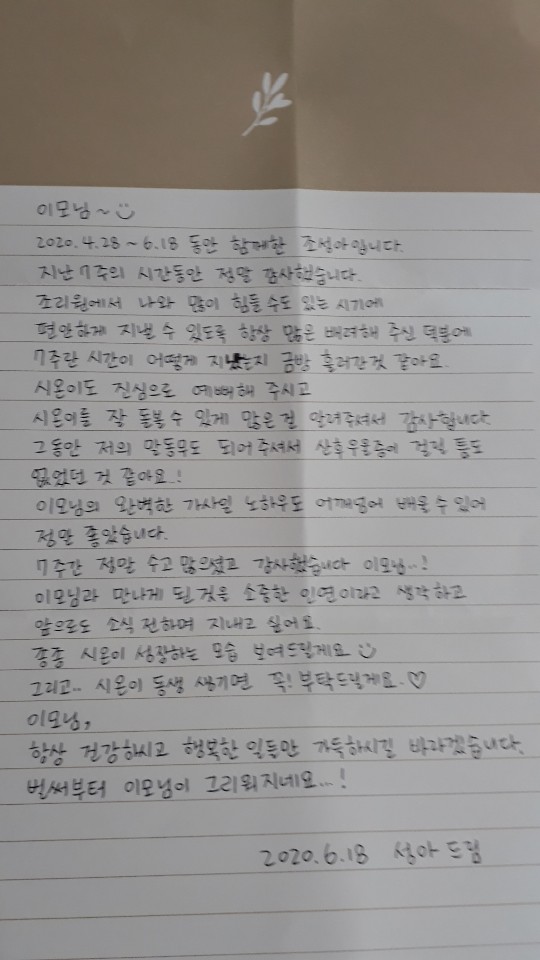 이모님~
2020.4.28~6.18 동안 함께한 조성아입니다.
지난 7주의 시간동안 정말 감사했습니다.
조리원에서 나와 많이 힘들 수도 있는 시기에
편안하게 지낼 수 있도록 항상 많은 배려해 주신 덕분에
7주란 시간이 어떻게 지났는지 금방 흘러간것 같아요.
시온이도 진심으로 예뻐해 주시고
시온이를 잘 돌볼 수 있게 많은걸 알려주셔서 감사합니다.
그동안 저의 말동무도 되어 주셔서 산후우울증에 걸릴 틈도
없었던 것 같아요.!
이모님의 완벽한 가사일 노하우도 어깨너머 배울 수 있어
정말 좋았습니다.
7주간 정말 수고 많으셨고 감사했습니다 이모님..!
이모님과 만나게 된 것을 소중한 인연이라고 생각하고
앞으로도 소식 전하며 지내고 싶어요.
종종 시온이 성장하는 모습 보여드릴게요
그리고.. 시온이 동생 생기면 꼭! 부탁드릴게요.♡
이모님,
항상 건강하시고 행복한 일들만 가득하시길 바라겠습니다.
벌써부터 이모님이 그리워지네요...!
2020.6.18 성아 드림